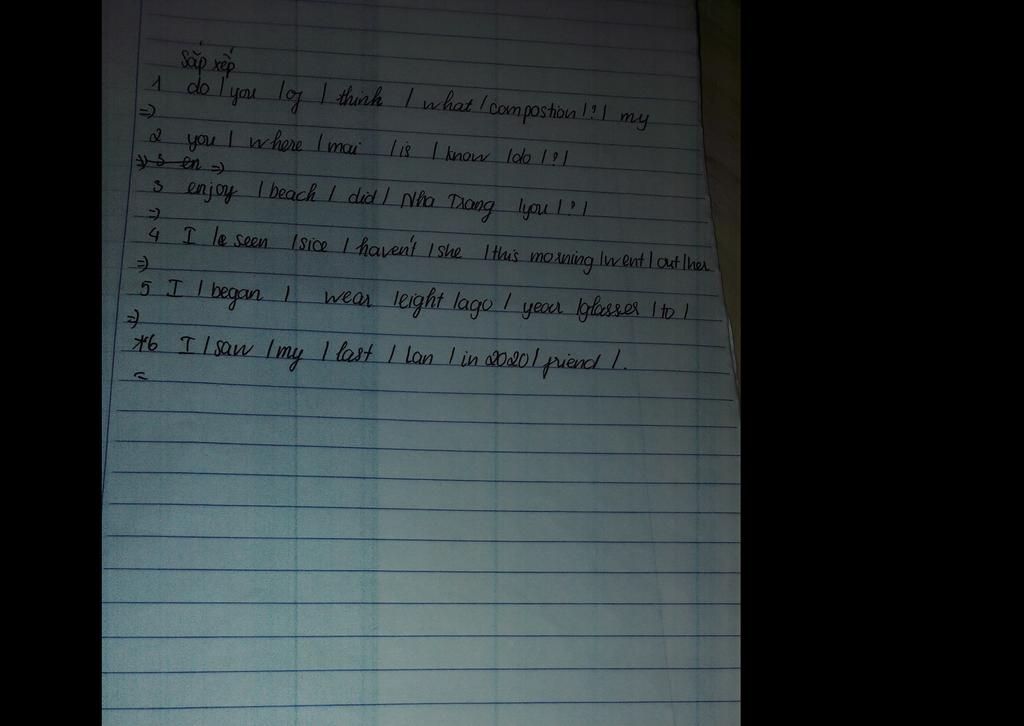 Sắp xếp
1 do / you / of / think / what / compostion / ? / my
=>
2 you / where / mai / is / know / do / ? /
=> 3 en =>
3 enjoy / beach / did / Nha Trang / you / ? /
=>
4 I / seen / sice / haven't / she / this morning / went / out / her
=>
5 I / began / wear / eight / ago / year / glasser / to /
=>
*6 I / saw / my / last / Lan / in 2020 / friend / .
=